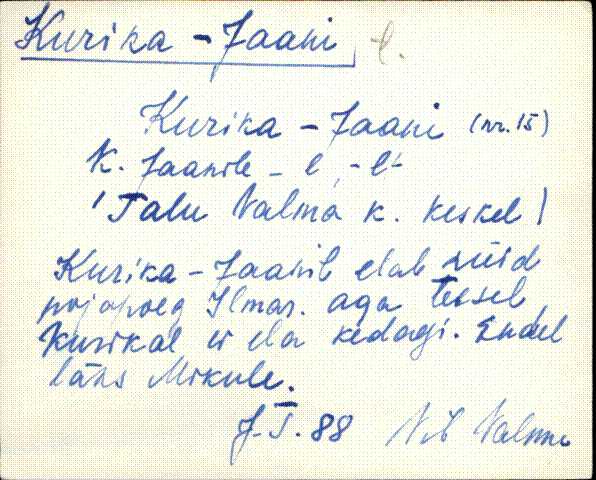 Kurika-Jaani t.
Kurika-Jaani (nr. 15)
K. Jaanile - l, -l'-
/Talu Valma k. keskel/
Kurika-Jaanil elab nüid
pojapoeg Ilmar. aga teisel
Kurikal ei ela kedagi. Endel
läks Mokule.
J.T. 88 Vil Valma